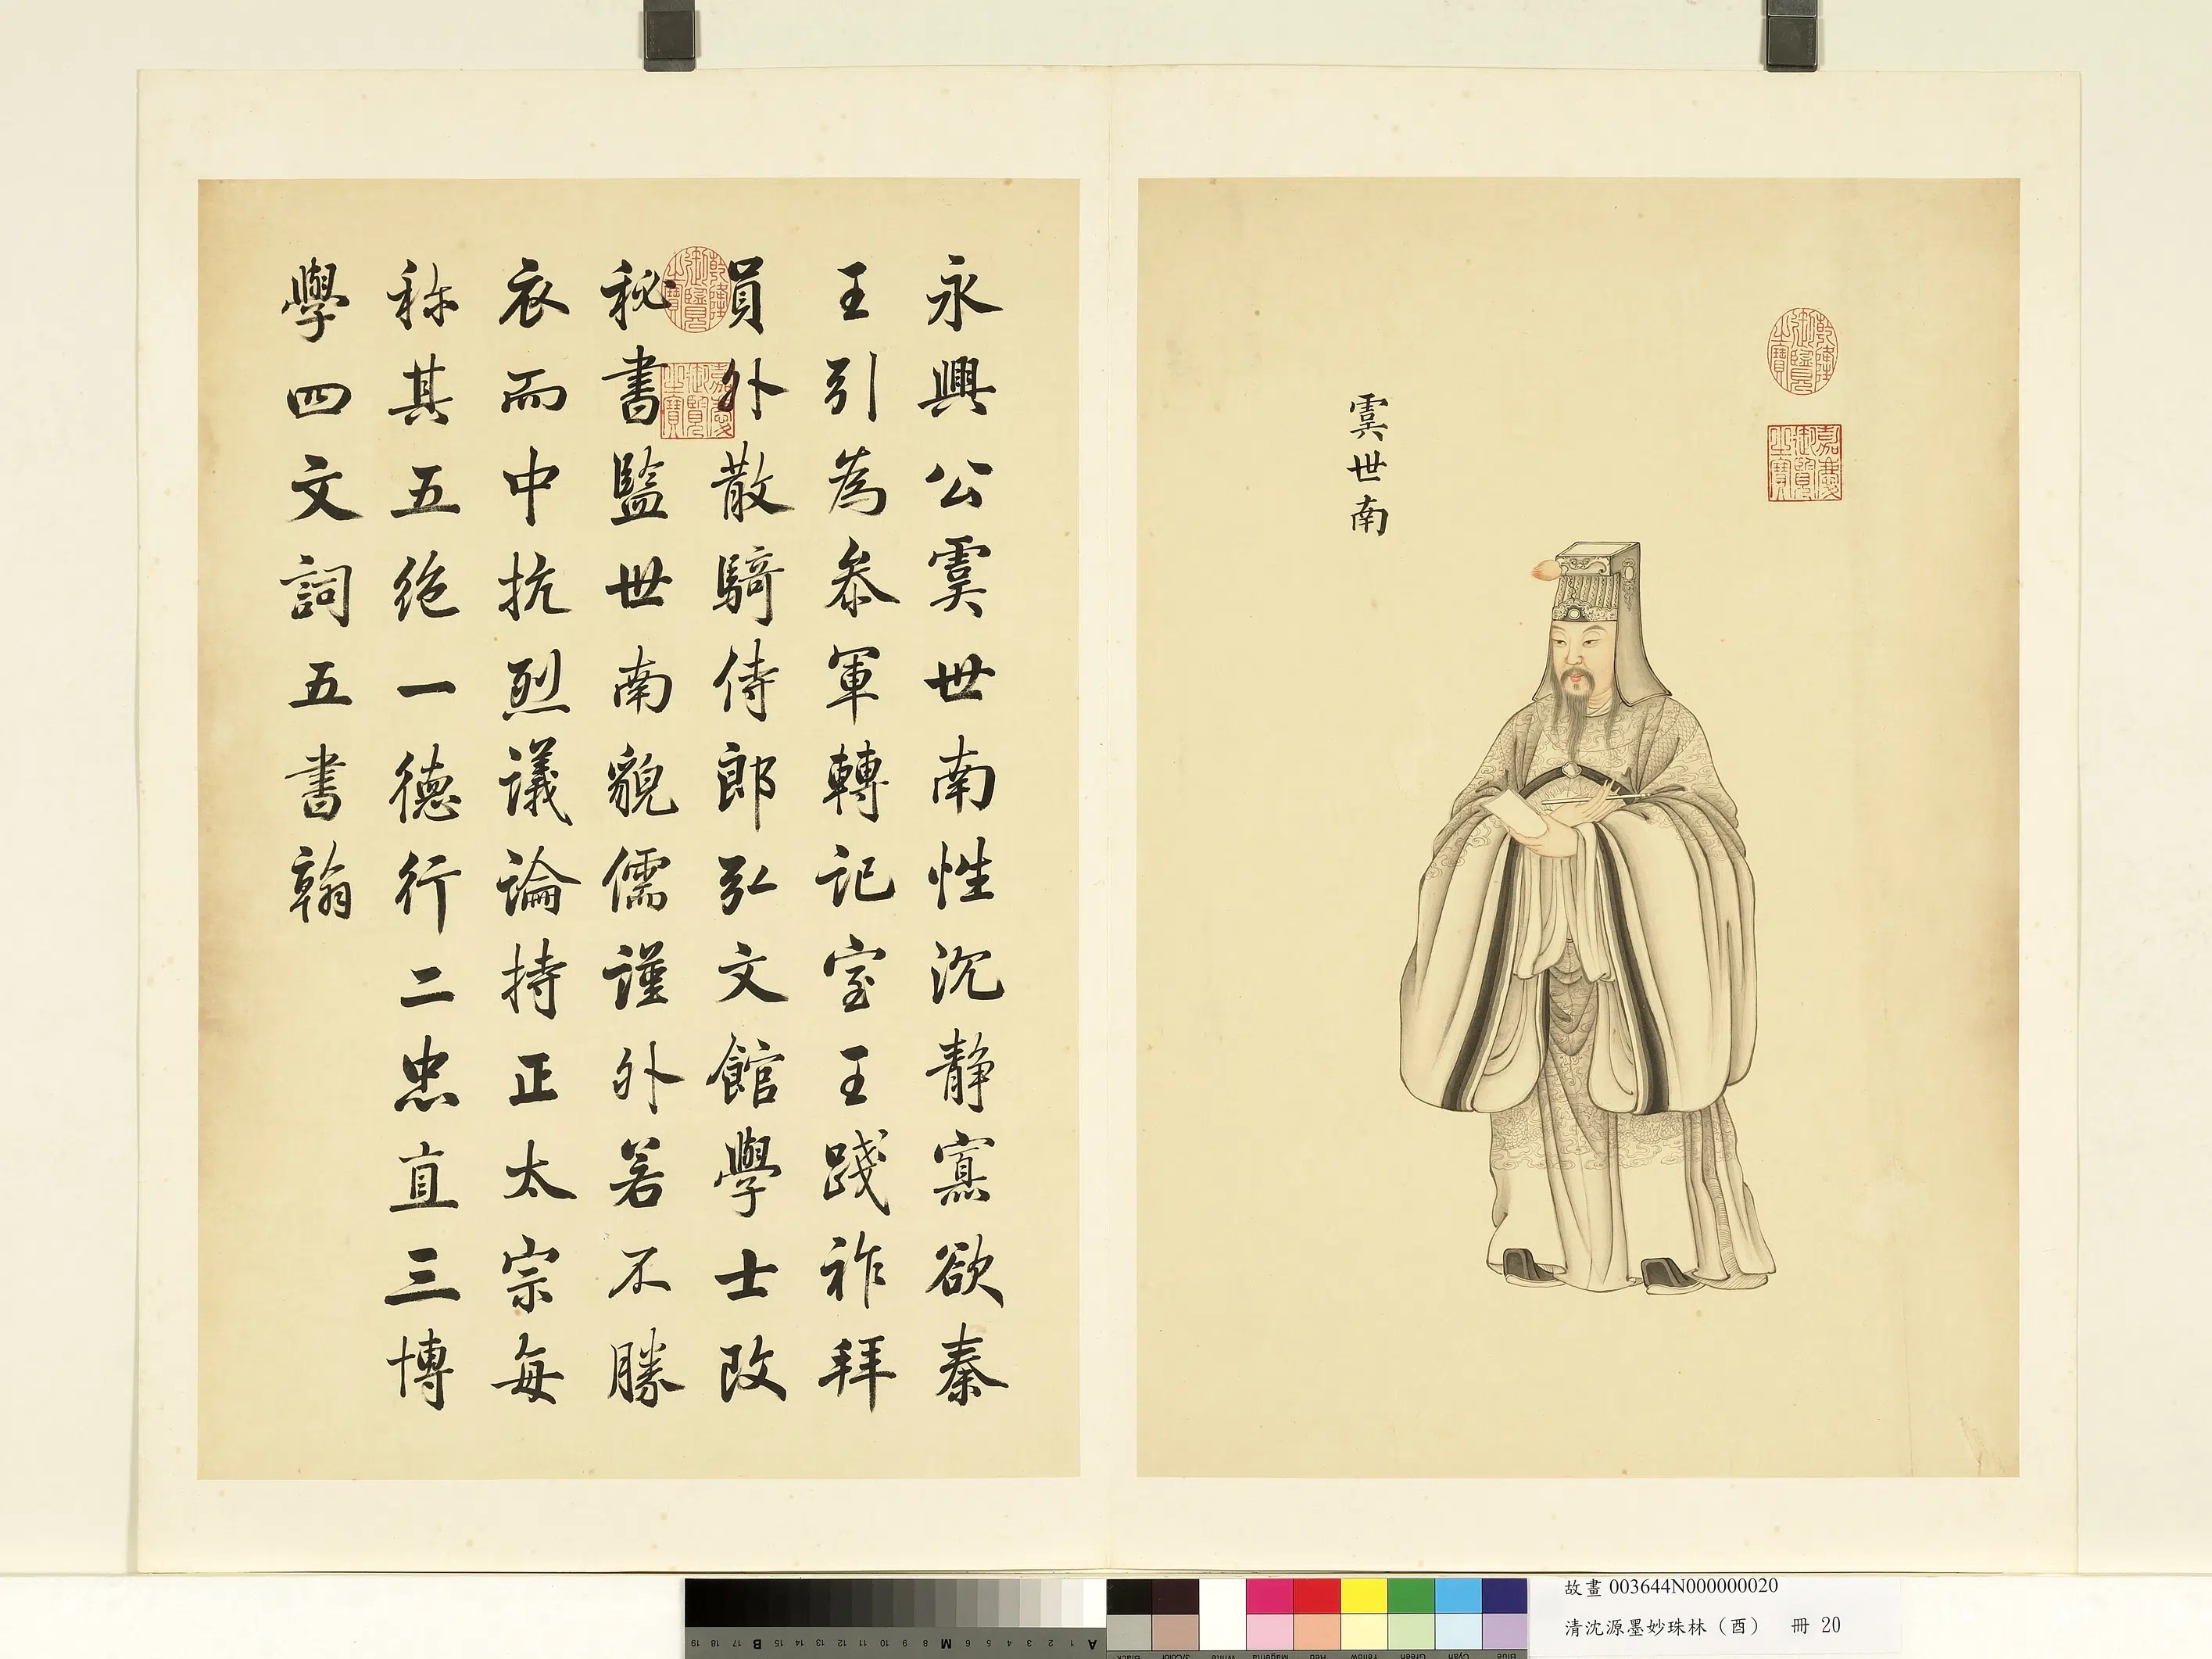 虞世南
乾隆御覽之寶
嘉慶御覽之寶
永興公虞世南性沉静寡欲秦
王引為叅軍轉記室王踐祚拜
員外散騎侍郎弘文館學士改
秘書監世南貌儒謹外若不勝
衣而中抗烈議論持正太宗每
称其五絶一德行二忠直三博
學四文詞五書翰
乾隆御覽之寶
嘉慶御覽之寶
故畫 003644N000000020
清沈源墨妙珠林（酉） 冊 20
19 18 17 B 15 14 13 12 11 10 9 8 M 6 5 4 3 2 1 A
Black 3/Color White Magenta Red Yellow Green Cyan Blue